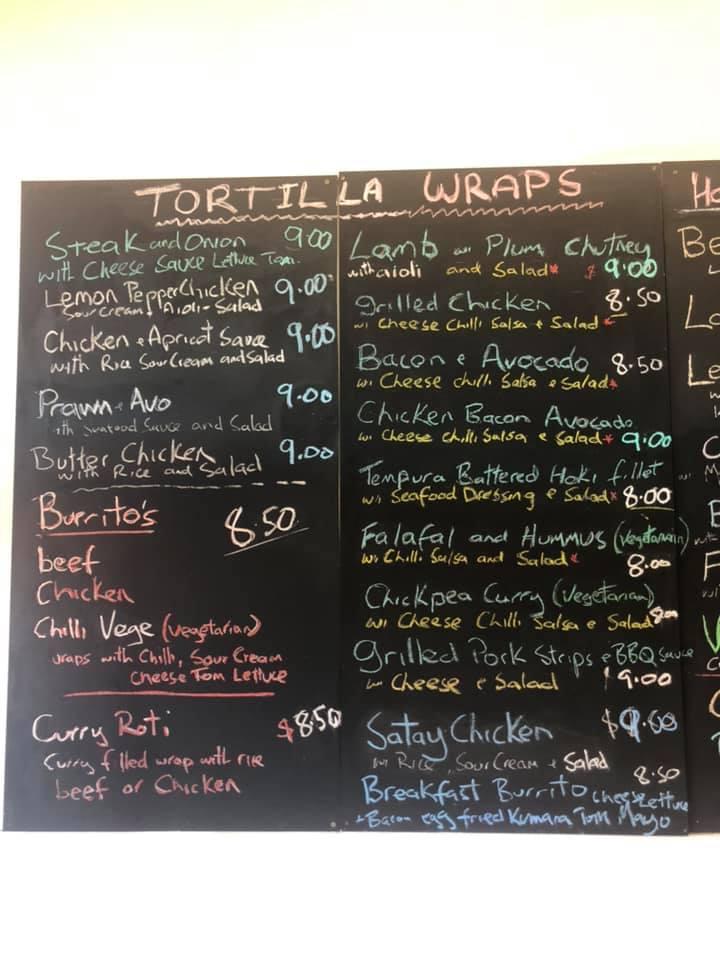 TORTILLA WRAPS
Steak and Onion 9.00
with Cheese Sauce Lettuce Tom.
Lemon Pepper Chicken 9.00
Sour cream, Aioli - Salad
Chicken & Apricot Sauce 9.00
with Rice Sour Cream and Salad
Prawn & Avo 9.00
ith Seafood Sauce and Salad
Butter Chicken 9.00
with Rice and Salad
Burrito's 8.50
beef
Chicken
Chilli Vege (vegetarian)
wraps with Chilli, Sour Cream
Cheese Tom Lettuce
Curry Roti $8.50
Curry filled wrap with rice
beef or Chicken
Lamb w/ Plum Chutney
with aioli and Salad* $ 9.00
grilled Chicken 8.50
w/ Cheese Chilli Salsa & Salad*
Bacon & Avocado 8.50
w/ Cheese chilli Salsa & Salad*
Chicken Bacon Avocado
w/ Cheese chilli Salsa & Salad* 9.00
Tempura Battered Hoki fillet
w/ Seafood Dressing & Salad* 8.00
Falafal and Hummus (vegetarain)
w/ Chilli Salsa and Salad* 8.00
Chickpea Curry (vegetarian)
w/ Cheese Chilli Salsa & Salad 8.00
grilled Pork Strips & BBQ sauce
w/ Cheese & Salad 9.00
Satay Chicken
w/ Rice, Sour Cream & Salad
8.50
Breakfast Burrito cheese lettuce
+ Bacon egg fried Kumara Tom Mayo